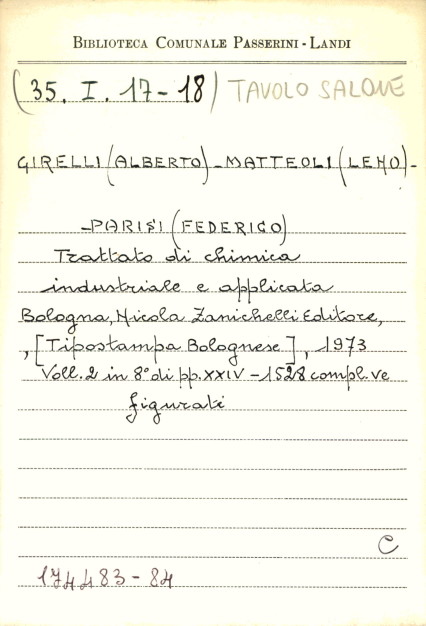 BIBLIOTECA COMUNALE PASSERINI - LANDI
(35. I. 17-18) TAVOLO SALONE
GIRELLI (ALBERTO) - MATTEOLI (LENO) -
- PARISI (FEDERICO)
Trattato di chimica
industriale e applicata
Bologna, Nicola Zanichelli Editore,
, [Tipostampa Bolognese], 1973
Voll. 2 in 8° di pp. XXIV - 1528 compl. ve
figurati
C
174483-84